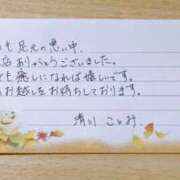 も 足元の悪い中、
店 ありがとうございました。
でも 癒しになれば嬉しいです。
お越しをお待ちしております。
清川 ことみ